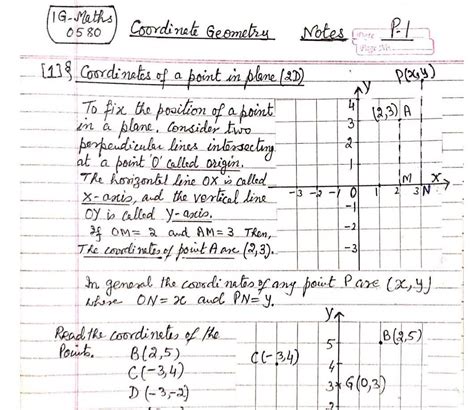 IG-Maths
0580
Coordinate Geometry Notes
Page
P-1
Page No.
[1]§ Coordinates of a point in plane (2D)
To fix the position of a point
in a plane, consider two
perpendicular lines intersecting
at a point 'O' called origin.
The horizontal line OX is called
X-axis, and the vertical line
OY is called Y-axis.
If OM = 2 and AM = 3 Then,
The coordinates of point A are (2,3).
Y
P(x,y)
4
3
(2,3) A
2
1
M
X
-3 -2 -1 0 1 2 3 N
-1
-2
-3
In general the coordinates of any point P are (x,y)
where ON = x and PN = y.
Read the coordinates of the
Points.
B(2,5)
C(-3,4)
D(-3,-2)
Y
5
B(2,5)
C(-3,4)
4
3
G(0,3)